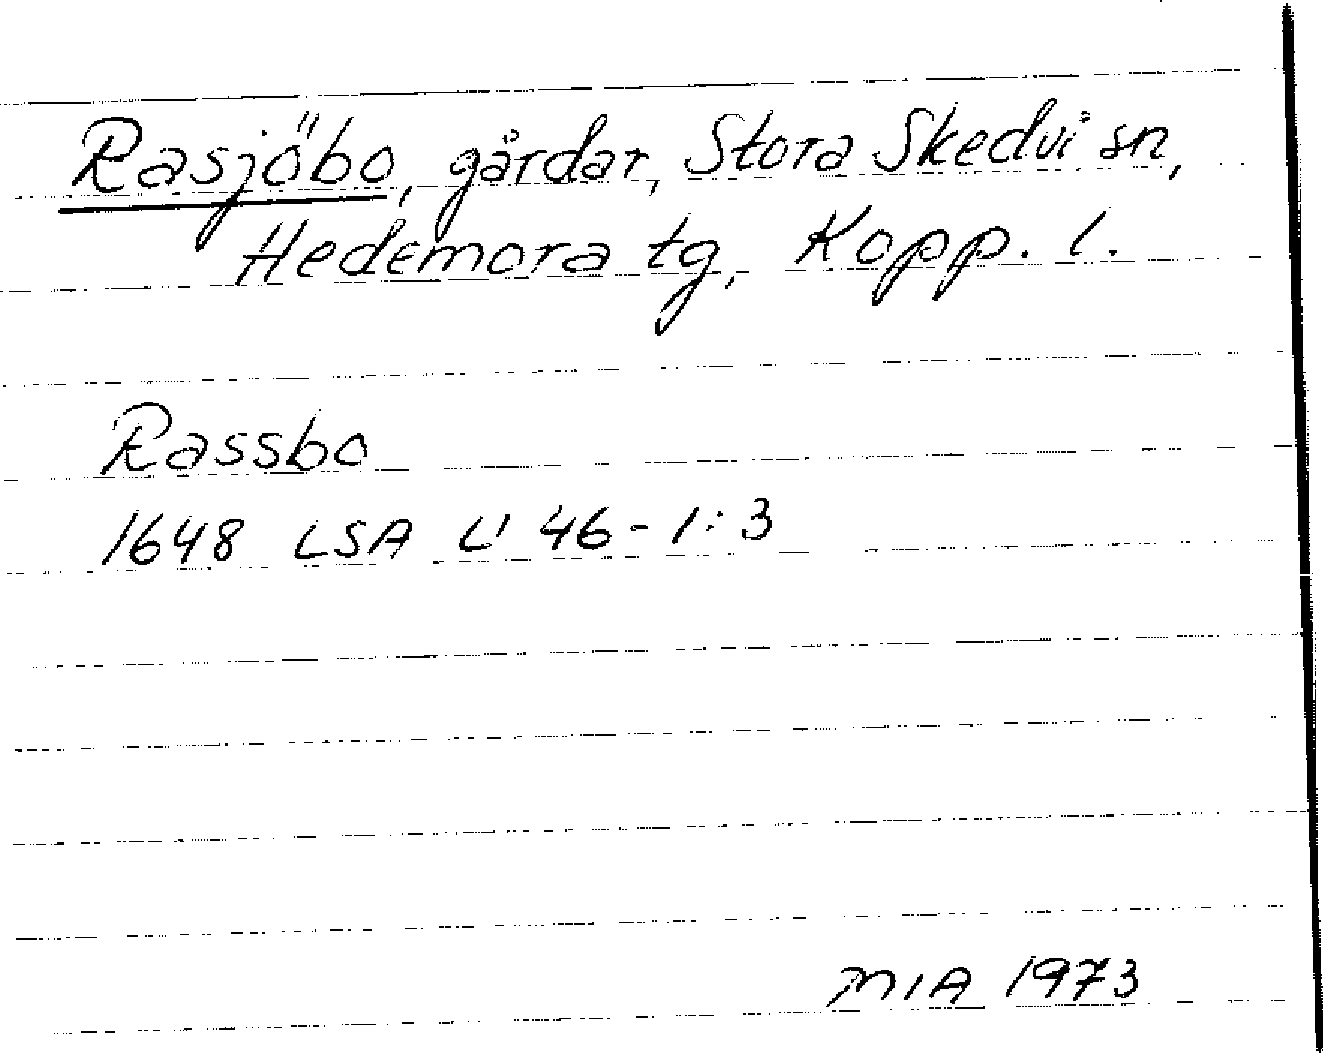 Rasjöbo, gårdar, Stora Skedvi sn,
Hedemora tg, Kopp. l.
Rassbo
1648 LSA U 46-1:3
MIA 1973